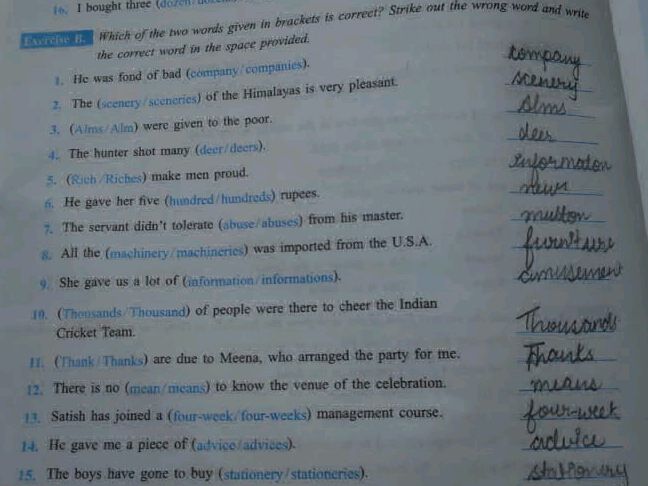 16. I bought three (dozen/
Exercise B. Which of the two words given in brackets is correct? Strike out the wrong word and write
the correct word in the space provided.
1. He was fond of bad (company/companies). company
2. The (scenery/sceneries) of the Himalayas is very pleasant. scenery
3. (Alms/Alm) were given to the poor. Alms
4. The hunter shot many (deer/deers). deer
5. (Rich/Riches) make men proud. informaton
6. He gave her five (hundred/hundreds) rupees. news
7. The servant didn't tolerate (abuse/abuses) from his master. mutton
8. All the (machinery/machineries) was imported from the U.S.A. furniture
9. She gave us a lot of (information/informations). amusement
10. (Thousands/Thousand) of people were there to cheer the Indian
Cricket Team. Thousands
11. (Thank/Thanks) are due to Meena, who arranged the party for me. Thanks
12. There is no (mean/means) to know the venue of the celebration. means
13. Satish has joined a (four-week/four-weeks) management course. four-week
14. He gave me a piece of (advice/advices). advice
15. The boys have gone to buy (stationery/stationeries). stationery